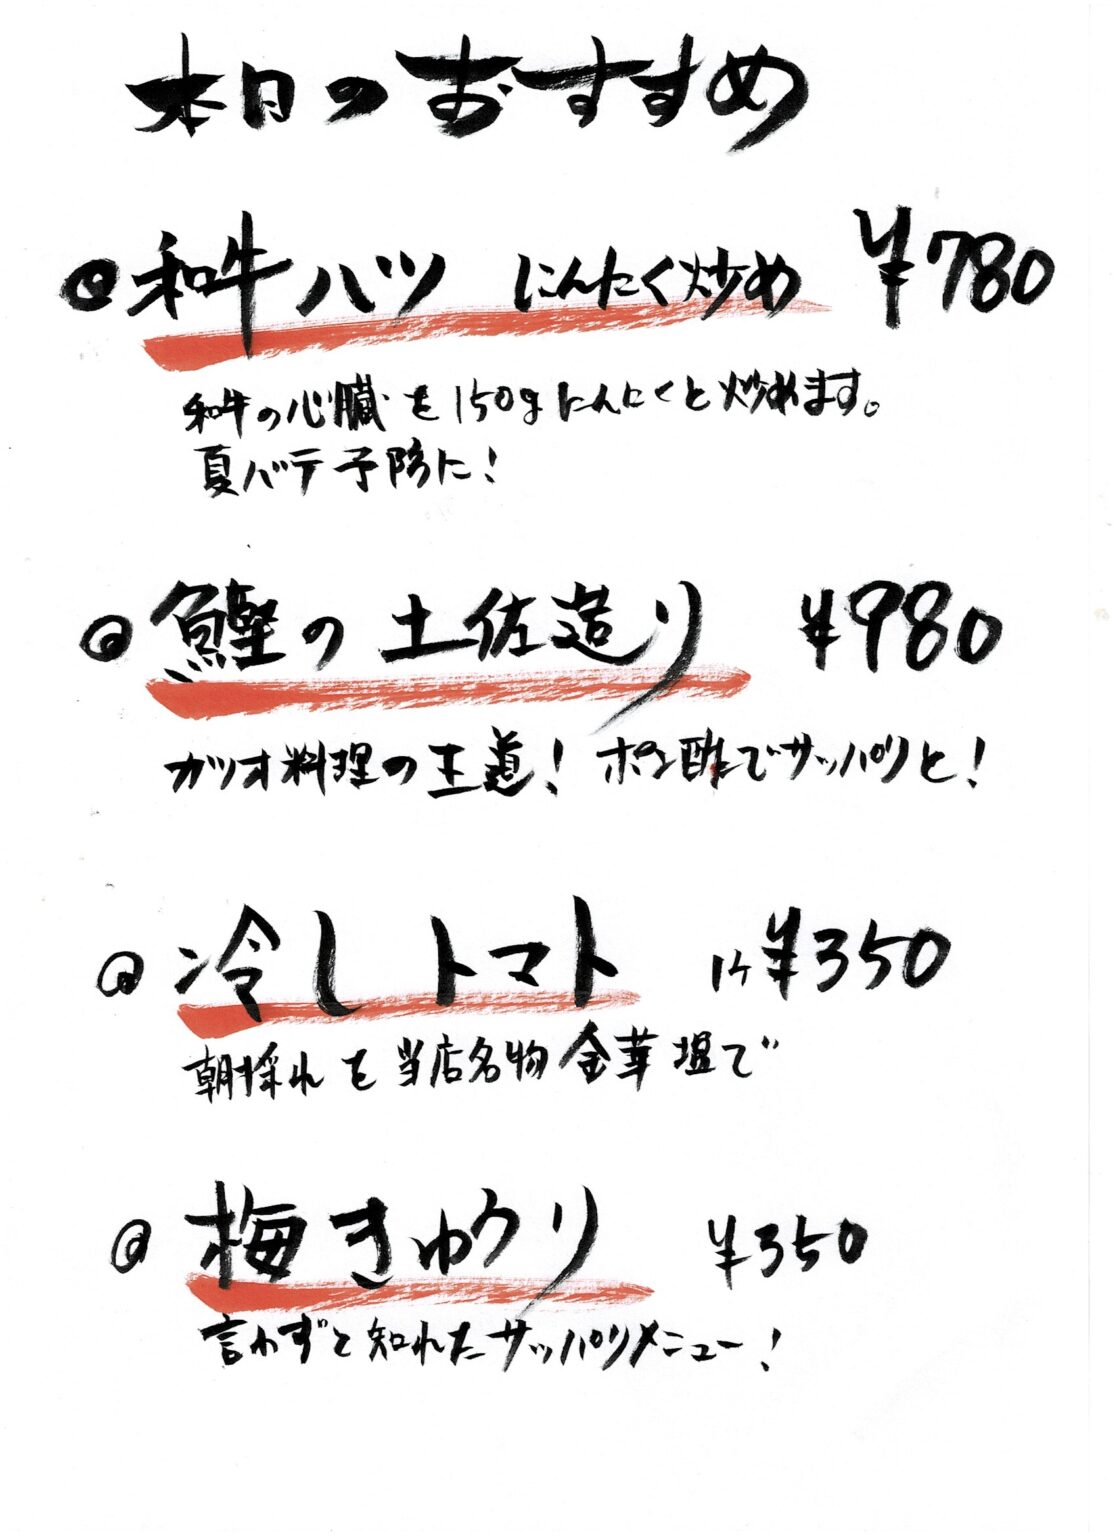 本日のおすすめ
◎和牛ハツ にんにく炒め ¥780
和牛の心臓を150gにんにくと炒めます。
夏バテ予防に!
◎鰹の土佐造り ¥980
カツオ料理の王道! ポン酢でサッパリと!
◎冷しトマト 1ケ¥350
朝採れを当店名物金華塩で
◎梅きゅうり ¥350
言わずと知れたサッパリメニュー!